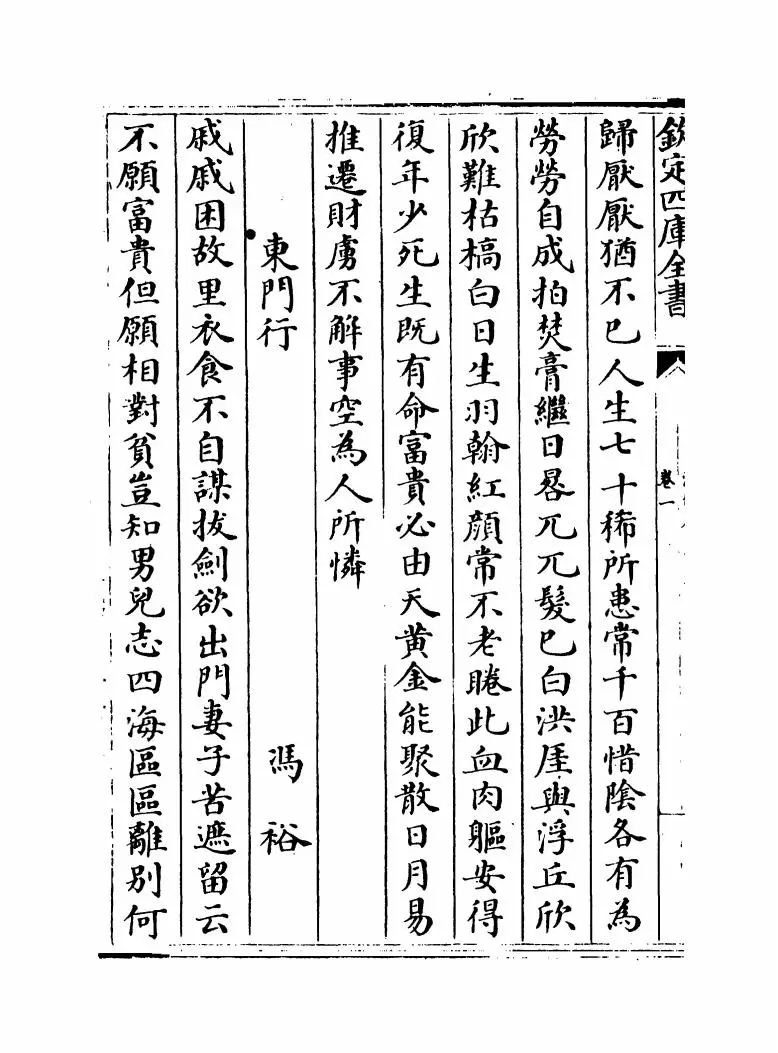 欽定四庫全書
卷一
歸厭厭猶不已人生七十稀所患常千百惜陰各有為
勞勞自成拍焚膏繼日晷兀兀髮已白洪厓與浮丘欣
欣難枯槁白日生羽翰紅顏常不老睠此血肉軀安得
復年少死生既有命富貴必由天黄金能聚散日月易
推遷財虜不解事空為人所憐
東門行　馮裕
戚戚困故里衣食不自謀拔劍欲出門妻子苦遮留云
不願富貴但願相對貧豈知男兒志四海區區離別何